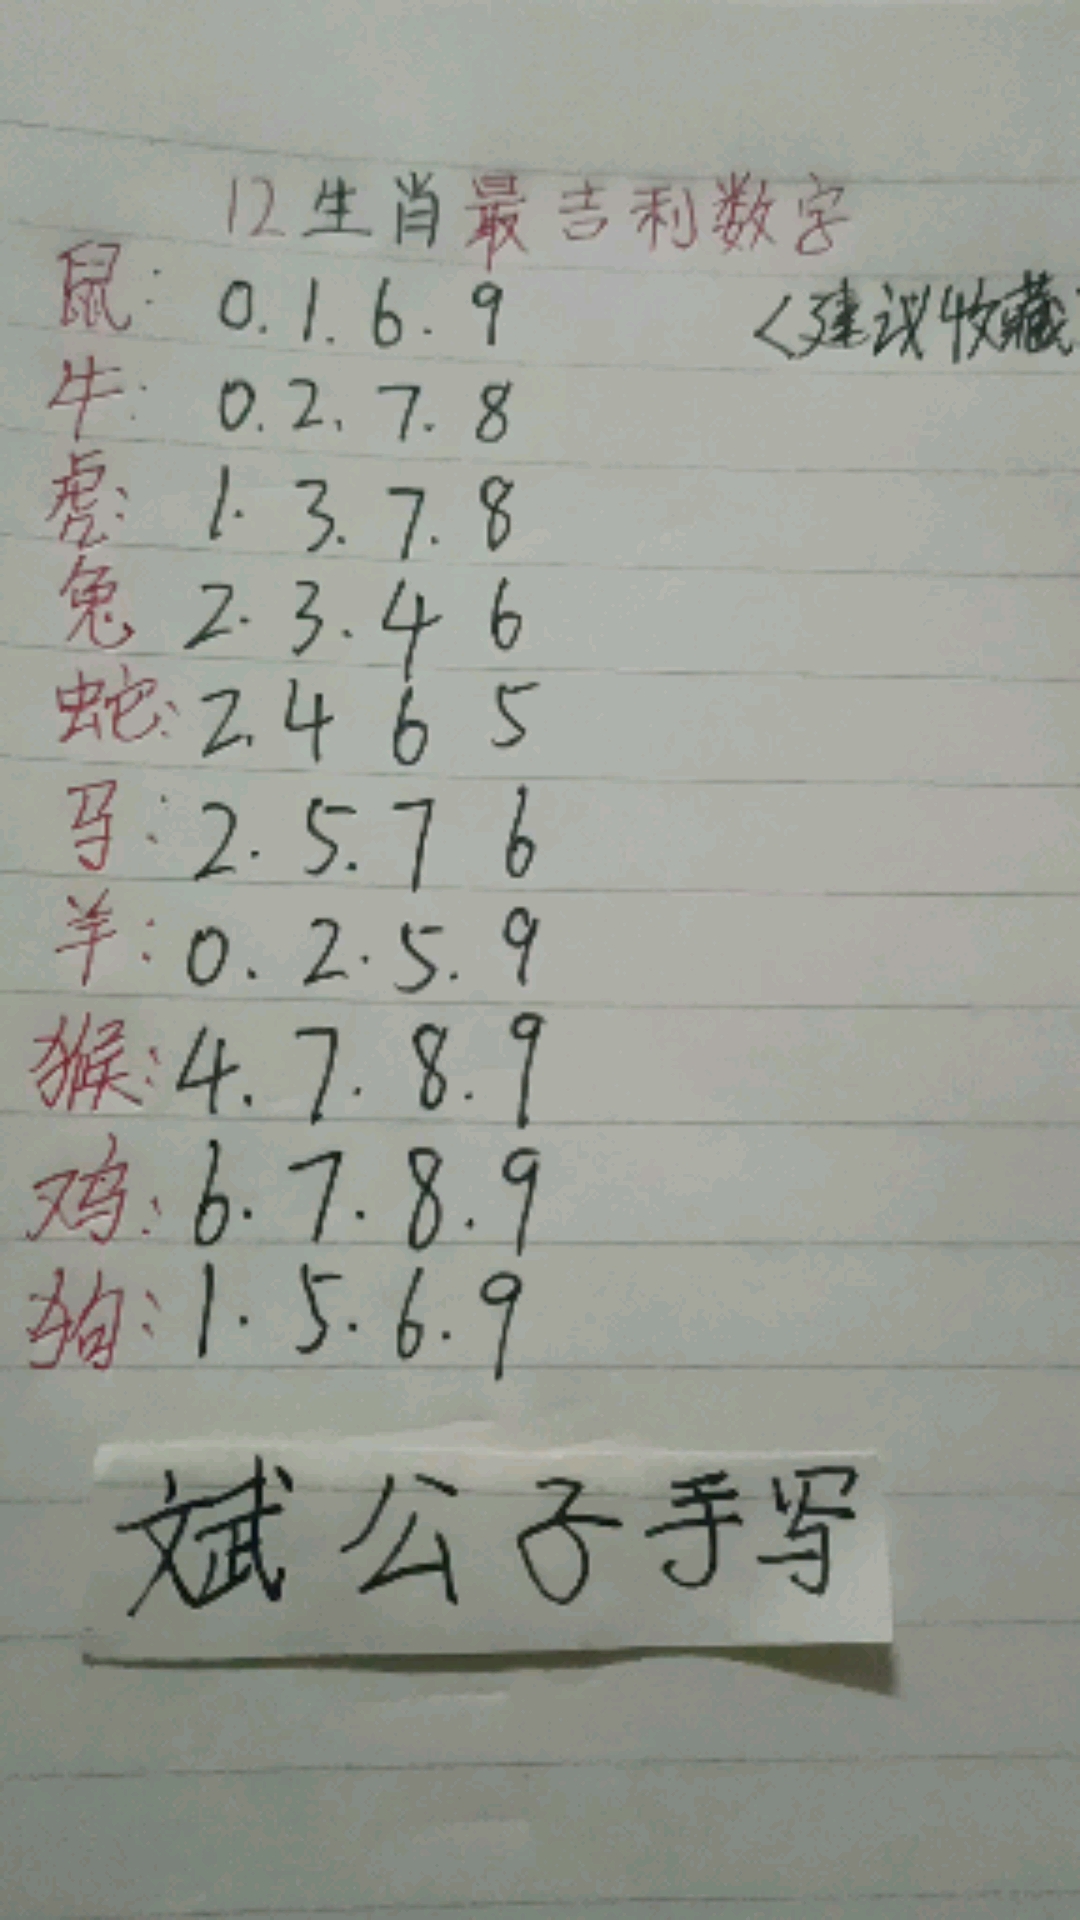 12生肖最吉利数字
鼠: 0.1.6.9
<建议收藏
牛: 0.2.7.8
虎: 1.3.7.8
兔 2.3.4 6
蛇: 2.4 6 5
马: 2.5.7 6
羊: 0.2.5.9
猴: 4.7.8.9
鸡: 6.7.8.9
狗: 1.5.6.9
斌公子手写